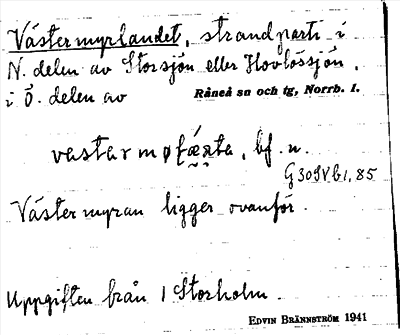 Västermyrlandet, strandparti i
N. delen av Storsjön eller Hovlössjön,
i Ö. delen av Råneå sn och tg, Norrb. l.
vastar , bf. n.
G30IVb1,85
Västermyran ligger ovanför.
Uppgiften från 1 Storholm.
EDVIN BRÄNNSTRÖM 1941